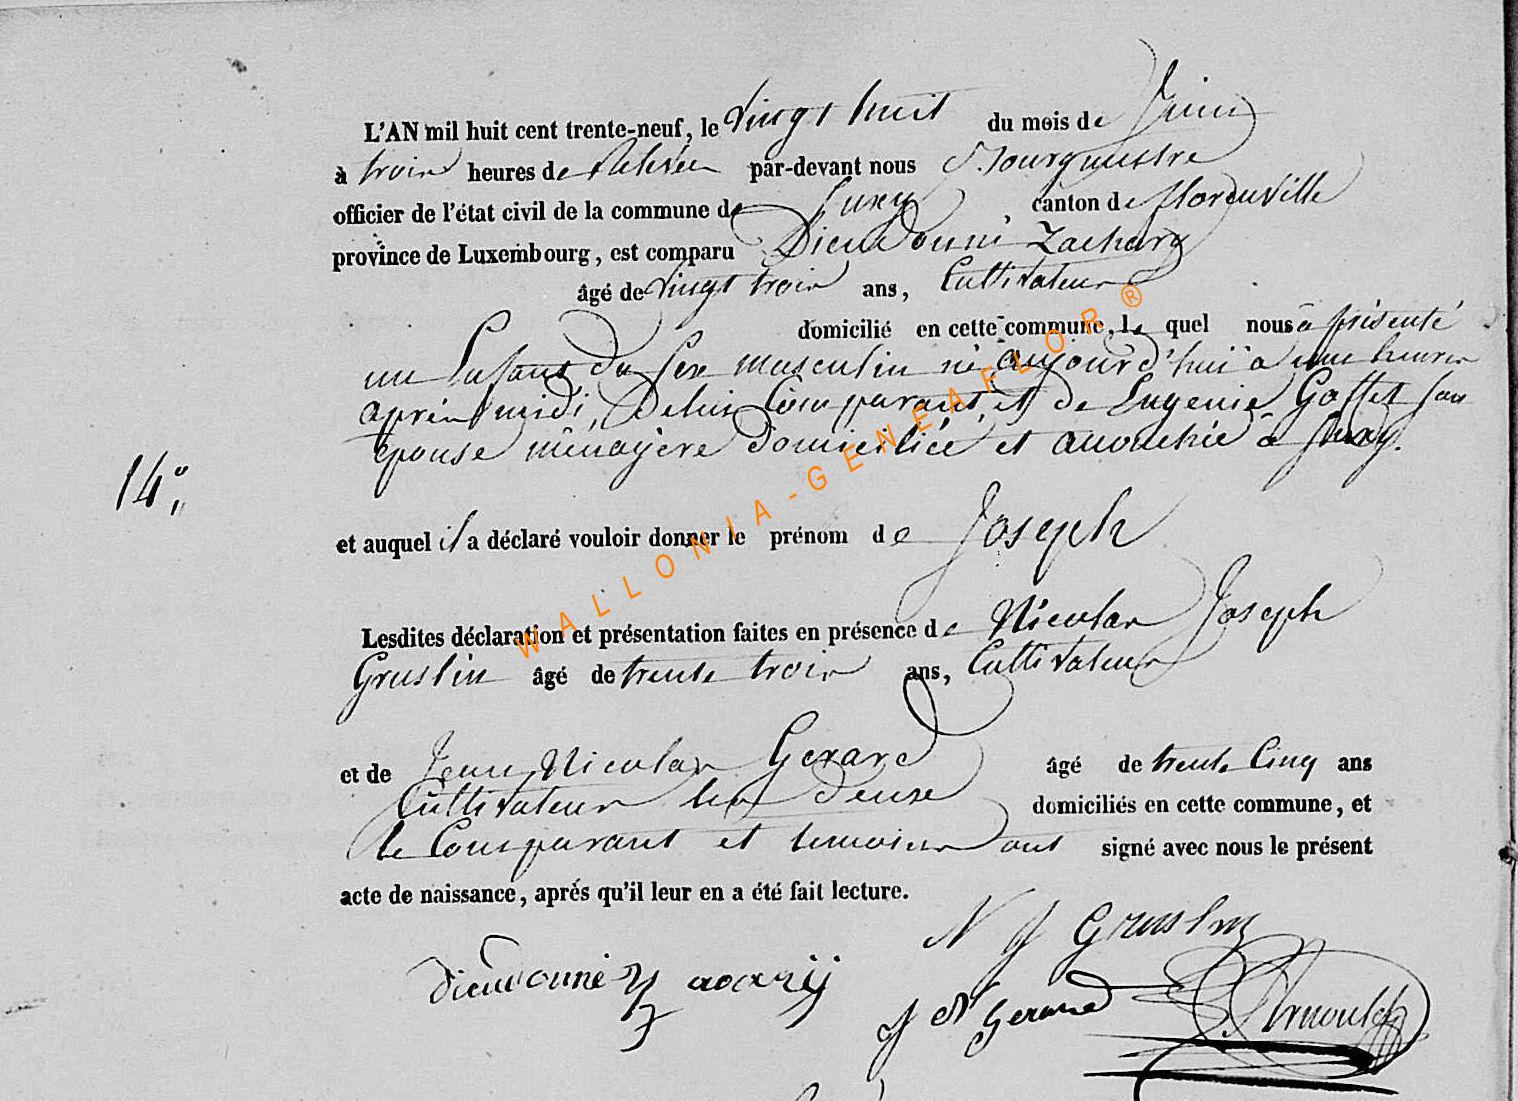 L'AN mil huit cent trente-neuf, le vingt huit du mois de Juin
à trois heures de relevée par-devant nous Bourguestre
officier de l'état civil de la commune de Suxy canton de florenville
province de Luxembourg, est comparu Dieudonné Zachary
âgé de vingt trois ans, Cultivateur
domicilié en cette commune, le quel nous à présenté
un Enfant du Sex masculin né aujourd'hui à une heures
après midi, Deluis Comparant, et de Eugenie Goffet son
épouse ménagère domiciliée et accouchée à Suxy.
14°
et auquel il a déclaré vouloir donner le prénom de Joseph
Lesdites déclaration et présentation faites en présence de Nicolas Joseph
Gruslin âgé de trente trois ans, Cultivateur
et de Jean Nicolas Gerard âgé de trente Cinq ans
Cultivateur les deux domiciliés en cette commune, et
le Comparant et temoins ont signé avec nous le présent
acte de naissance, aprés qu'il leur en a été fait lecture.
N J Gruslin
dieudonné Zacarij
J N Gerard Arnould
WALLONIA-GENEAFLOR®